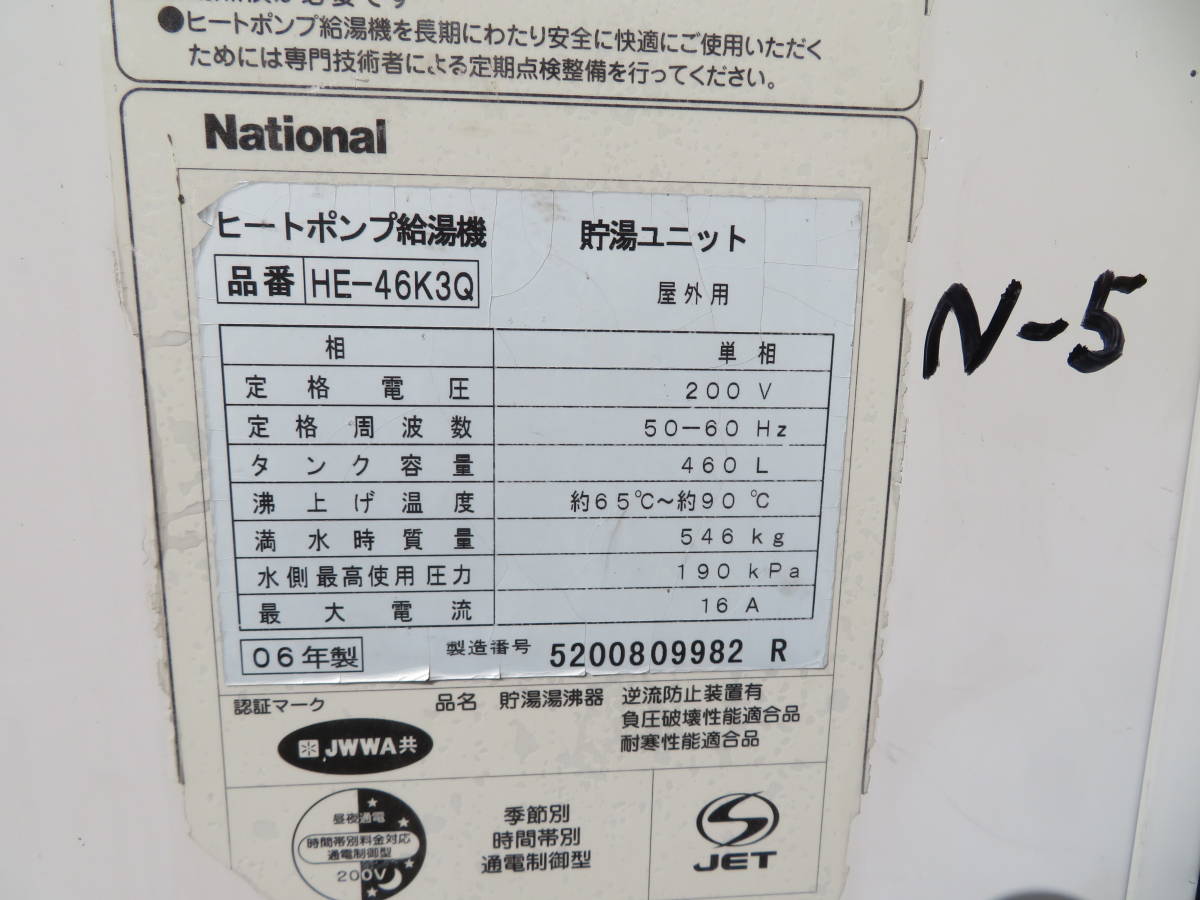 ●ヒートポンプ給湯機を長期にわたり安全に快適にご使用いただく
ためには専門技術者による定期点検整備を行ってください。
National
ヒートポンプ給湯機 貯湯ユニット
品番 HE-46K3Q 屋外用
相 単相
定格電圧 200 V
定格周波数 50-60 Hz
タンク容量 460 L
沸上げ温度 約65℃~約90℃
満水時質量 546 kg
水側最高使用圧力 190 kPa
最大電流 16 A
06年製 製造番号 5200809982 R
認証マーク 品名 貯湯湯沸器 逆流防止装置有
負圧破壊性能適合品
耐寒性能適合品
JWWA共
昼夜通電
時間帯別料金対応
通電制御型
200V
季節別
時間帯別
通電制御型
JET
N-5